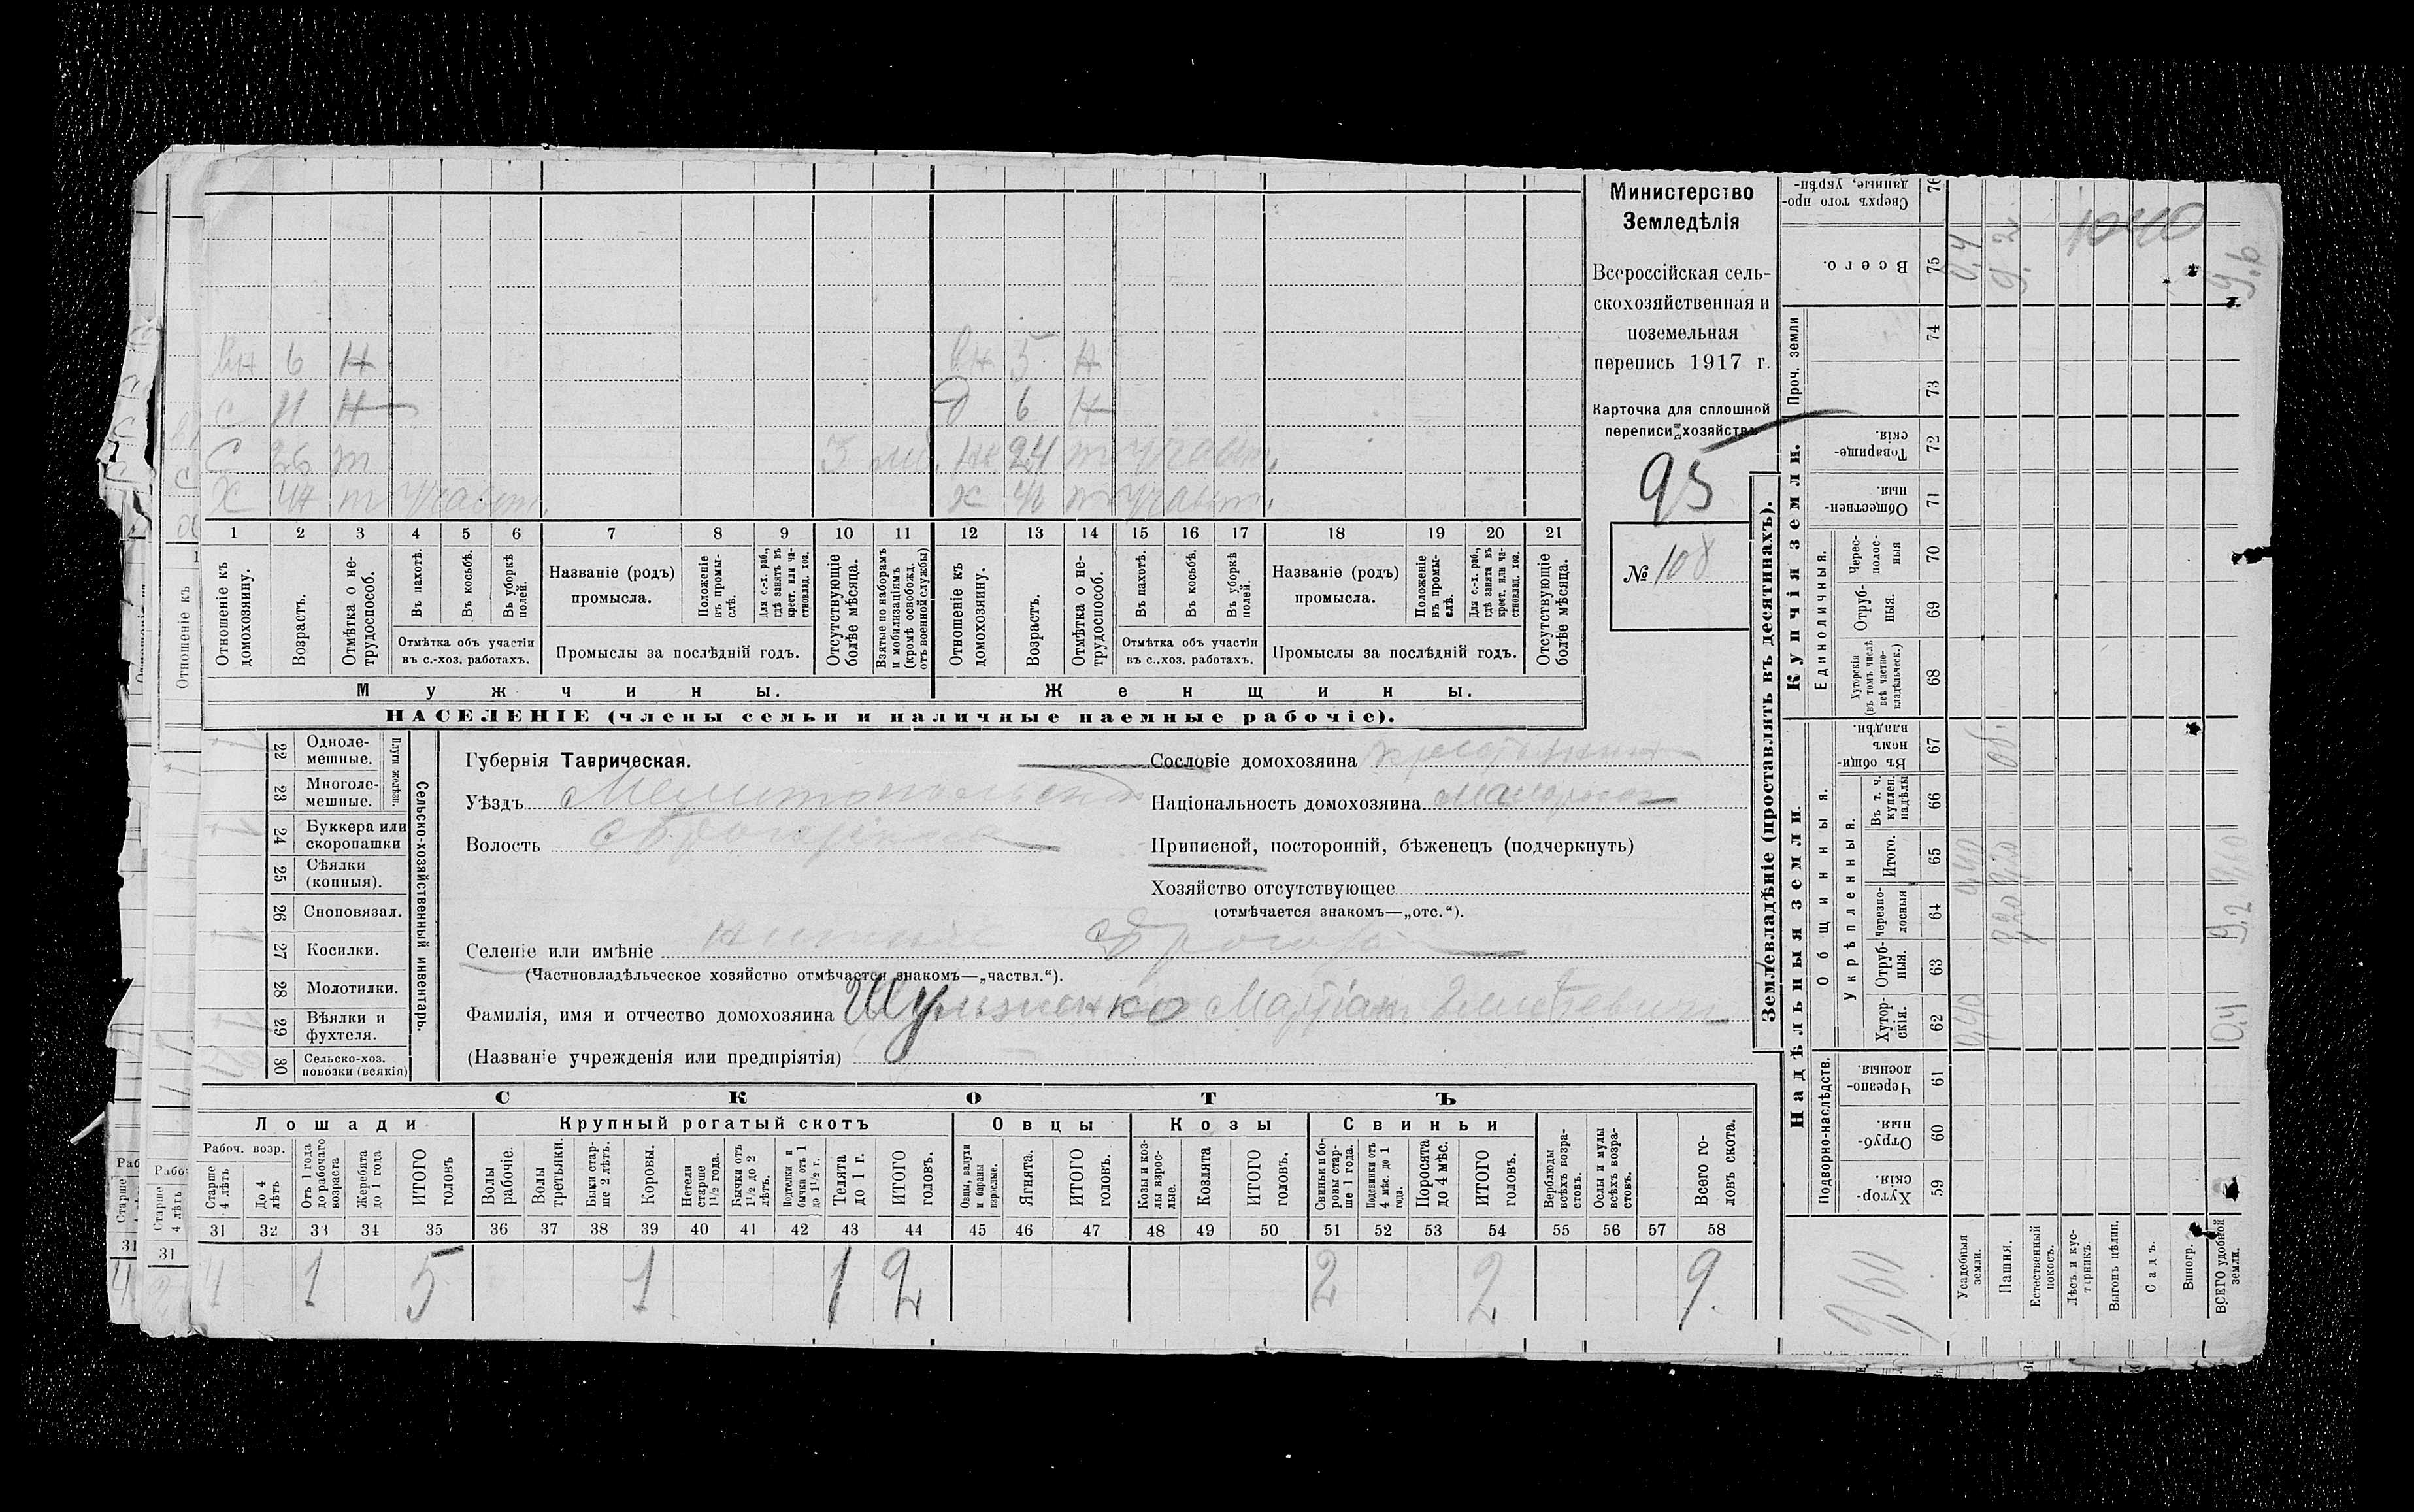 вн 6 н вн 5 н
с 11 н д 6 н
с 26 т 3 нк 24 т участ.
х 44 т участ. ж т участ.
1 2 3 4 5 6 7 8 9 10 11 12 13 14 15 16 17 18 19 20 21
Отношеніе къ домохозяину.
Возрастъ.
Отмѣтка о не-трудоспособ.
Въ пахотѣ.
Въ косьбѣ.
Въ уборкѣ полей.
Отмѣтка объ участіи
въ с.-хоз. работахъ.
Названіе (родъ)
промысла.
Положеніе въ промы-слѣ.
Для с.-х. раб., гдѣ занятъ въ крест. или ча-стновлад. хоз.
Промыслы за послѣдній годъ.
Отсутствующіе болѣе мѣсяца.
Взятые по наборамъ и мобилизаціямъ (кромѣ освобожд. отъ военной службы)
Отношеніе къ домохозяину.
Возрастъ.
Отмѣтка о не-трудоспособ.
Въ пахотѣ.
Въ косьбѣ.
Въ уборкѣ полей.
Отмѣтка объ участіи
въ с.-хоз. работахъ.
Названіе (родъ)
промысла.
Положеніе въ промы-слѣ.
Для с.-х. раб., гдѣ занята въ крест. или ча-стновлад. хоз.
Промыслы за послѣдній годъ.
Отсутствующіе болѣе мѣсяца.
Мужчины.
Женщины.
НАСЕЛЕНІЕ (члены семьи и наличные наемные рабочіе).
Министерство
Земледѣлія
Всероссійская сель-
скохозяйственная и
поземельная
перепись 1917 г.
Карточка для сплошной
переписи хозяйствъ
95
№ 108
22 Одноле-мешные.
23 Многоле-мешные.
Плуги желѣзн.
24 Буккера или скоропашки
25 Сѣялки (конныя).
26 Сноповязал.
27 Косилки.
28 Молотилки.
29 Вѣялки и фухтеля.
30 Сельско-хоз. повозки (всякія)
Сельско-хозяйственный инвентарь.
Губернія Таврическая.
Уѣздъ Мелитопольскій
Волость
Сословіе домохозяина крестьянин
Національность домохозяина малоросс
Приписной, посторонній, бѣженецъ (подчеркнуть)
Хозяйство отсутствующее
(отмѣчается знакомъ—„отс.“).
Селеніе или имѣніе
(Частновладѣльческое хозяйство отмѣчается знакомъ—„частвл.“).
Фамилія, имя и отчество домохозяина
(Названіе учрежденія или предпріятія)
СКОТЪ
Лошади
Крупный рогатый скотъ
Овцы
Козы
Свиньи
Рабоч. возр.
Старше 4 лѣтъ
До 4 лѣтъ
Отъ 1 года до рабочаго возраста
Жеребята до 1 года
ИТОГО головъ
Волы рабочіе.
Волы третьяки.
Быки стар-ше 2 лѣтъ.
Коровы.
Нетели старше 1½ года.
Бычки отъ 1½ до 2 лѣтъ.
Подтелки и бычки отъ 1 до 1½ г.
Телята до 1 г.
ИТОГО головъ.
Овцы, валухи и бараны взрослые.
Ягнята.
ИТОГО головъ.
Козы и коз-лы взрос-лые.
Козлята
ИТОГО головъ.
Свиньи и бо-ровы стар-ше 1 года.
Подсвинки отъ 4 мѣс. до 1 года.
Поросята до 4 мѣс.
ИТОГО головъ.
Верблюды всѣхъ возра-стовъ.
Ослы и мулы всѣхъ возра-стовъ.
Всего го-ловъ скота.
31 32 33 34 35 36 37 38 39 40 41 42 43 44 45 46 47 48 49 50 51 52 53 54 55 56 57 58
4 1 5 1 1 2 2 2 9.
Землевладѣніе (проставлять въ десятинахъ).
Надѣльныя земли.
Купчія земли.
Проч. земли
Подворно-наслѣдств.
Общинныя.
Укрѣпленныя.
Единоличныя.
Хутор-скія. 59
Отруб-ныя. 60
Черезпо-лосныя. 61
Хутор-скія. 62
Отруб-ныя. 63
Черезпо-лосныя 64
Итого. 65
Въ т. ч. куплен. надѣлы 66
Въ общин-номъ владѣн. 67
Хуторскія (въ томъ числѣ всѣ частно-владѣльческ.) 68
Отруб-ныя. 69
Черес-полос-ныя 70
Обществен-ныя. 71
Товарище-скія. 72
73
74
Всего. 75
Сверхъ того про-данныя, укрѣп- 76
Усадебныя земли.
Пашня.
Естественный покосъ.
Лѣсъ и кус-тарникъ.
Выгонъ цѣлин.
Садъ.
Виногр.
ВСЕГО удобной земли.
0,4
9.2
9.6
9,60